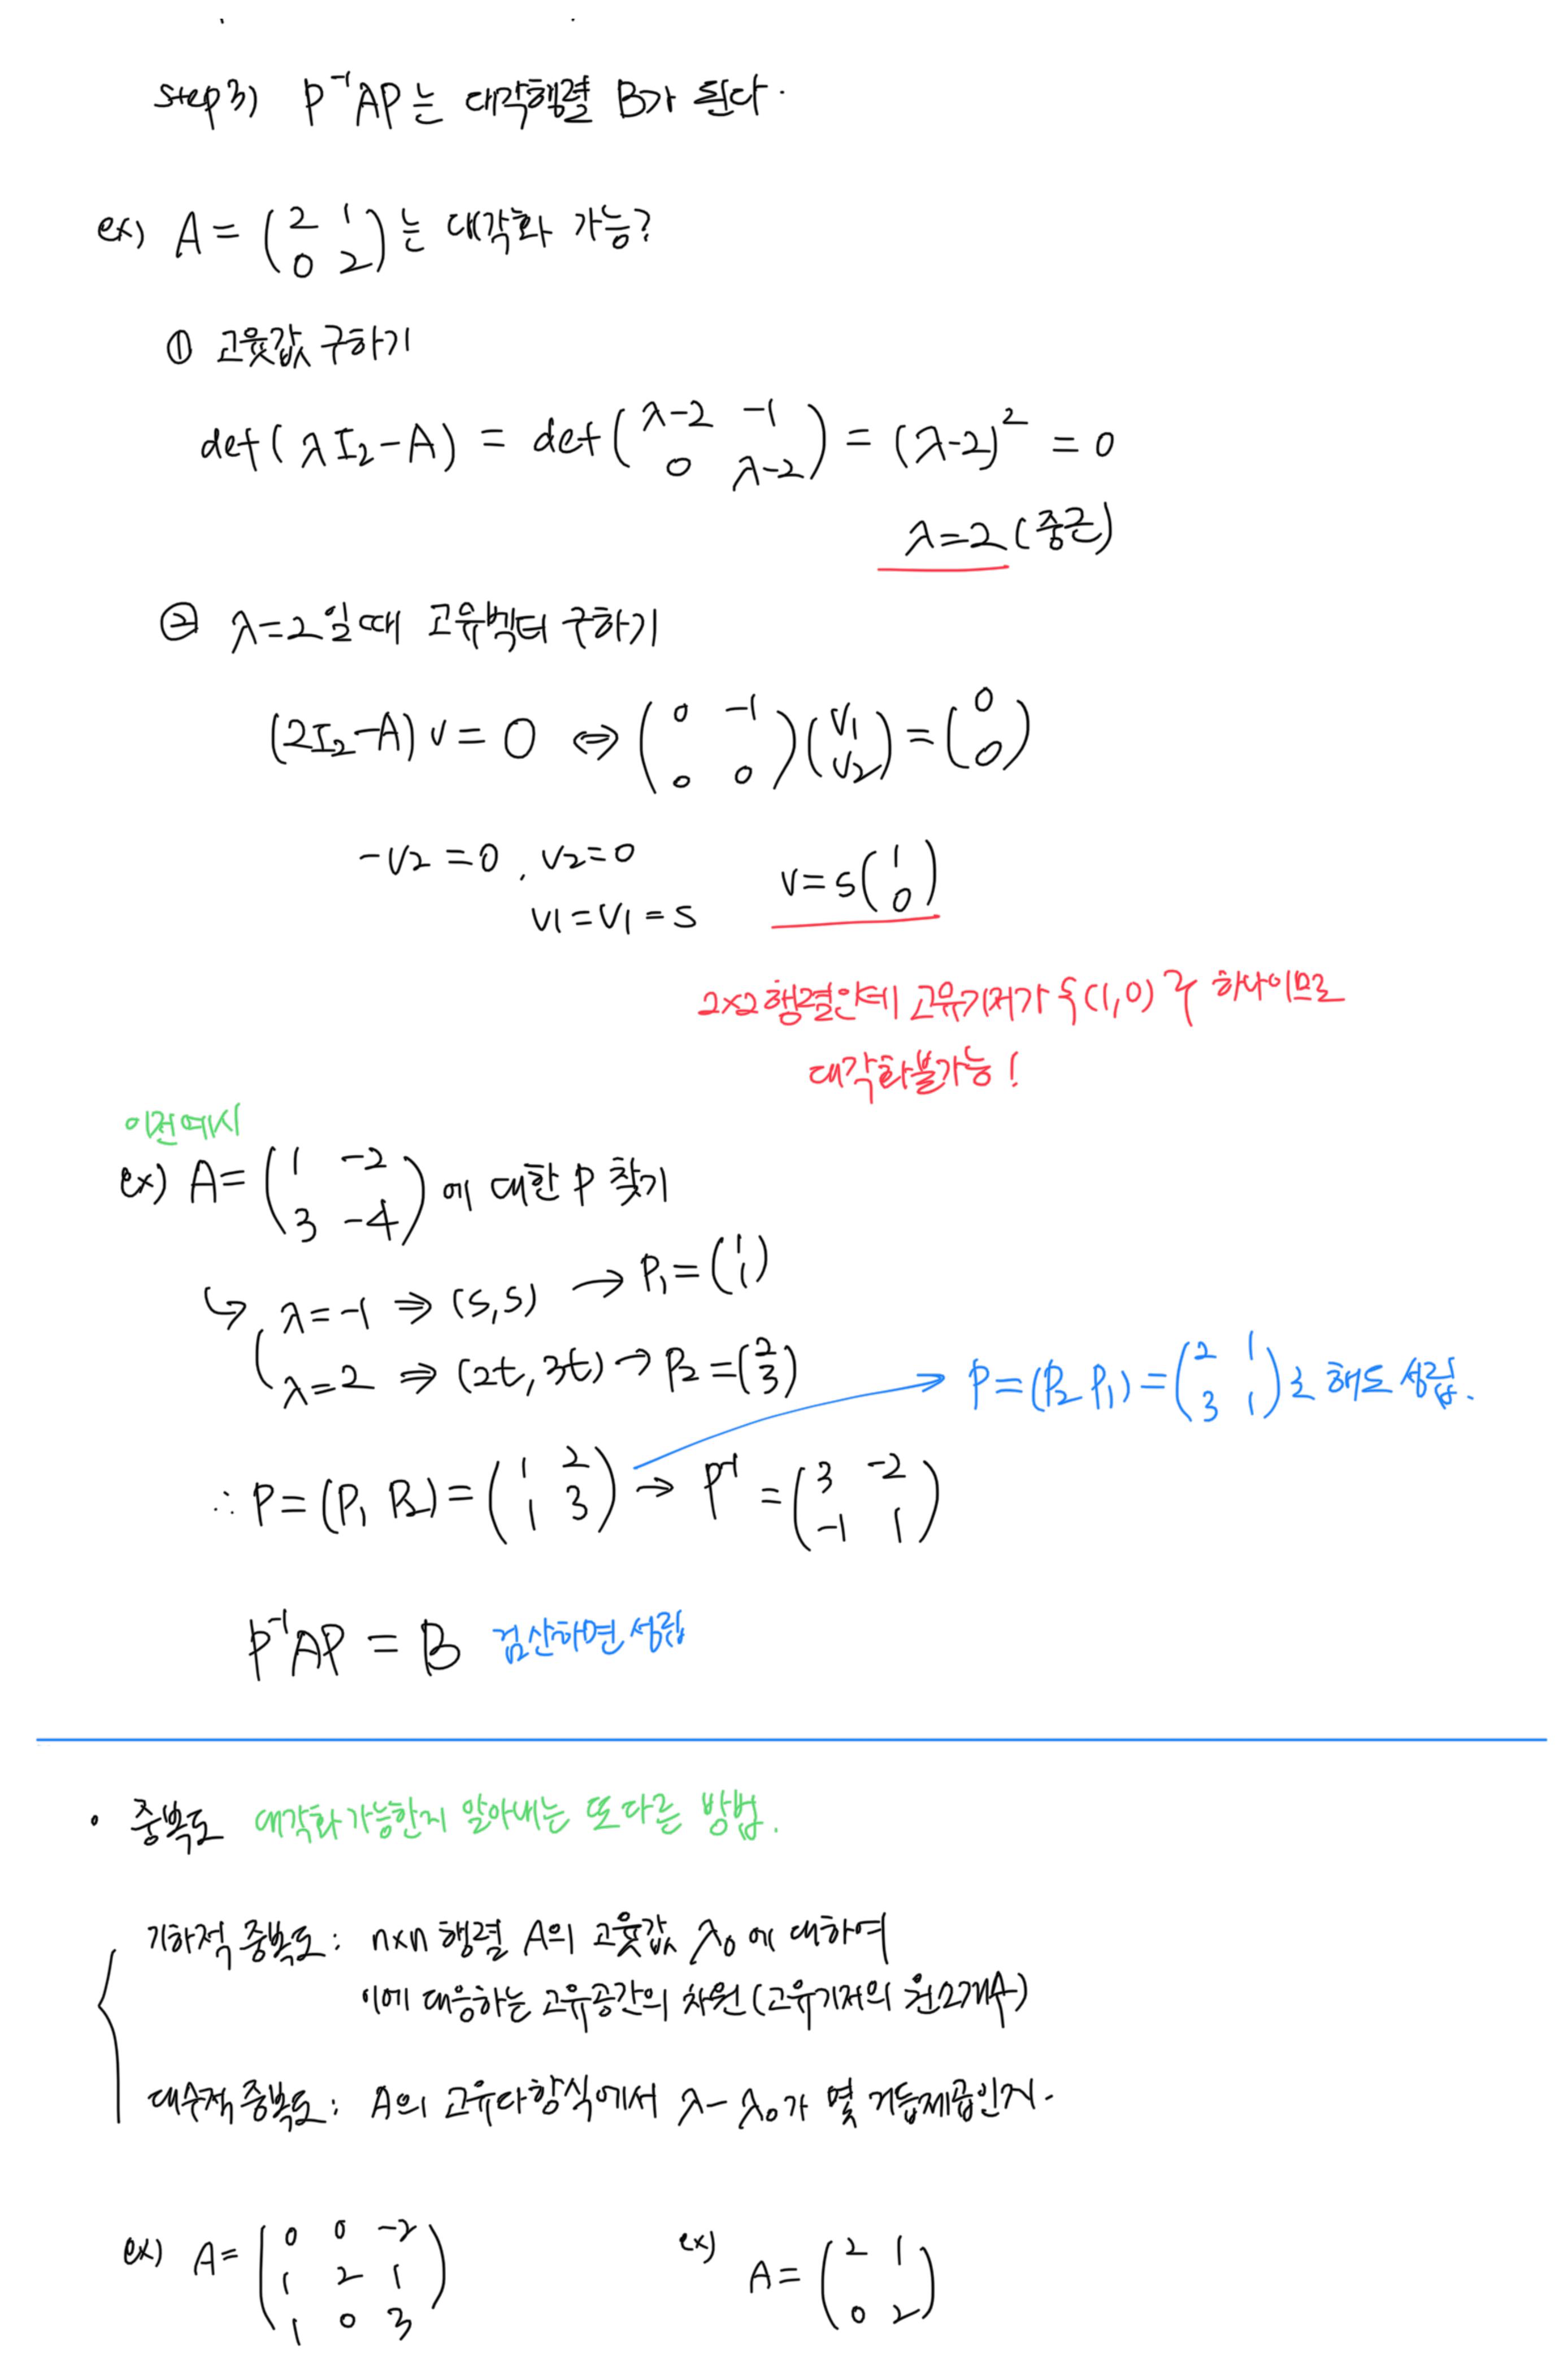 step3) P⁻¹AP는 대각행렬 B가 된다.
ex) A = (2 1 / 0 2)는 대각화 가능?
① 고윳값 구하기
det(λI₂-A) = det(λ-2 -1 / 0 λ-2) = (λ-2)² = 0
λ=2 (중근)
② λ=2일때 고유벡터 구하기
(2I₂-A)v = 0 ⇔ (0 -1 / 0 0)(v₁ / v₂) = (0 / 0)
-v₂ = 0, v₂=0
v₁=v₁=s v=s(1 / 0)
2x2 행렬인데 고유기저가 {(1,0)} 하나이므로
대각화불가능!
이전예시
ex) A= (1 -2 / 3 -4)에 대한 P 찾기
↳ λ=-1 ⇒ (s,s) → P₁=(1 / 1)
λ=2 ⇒ (2t,3t) → P₂=(2 / 3)
→ P=(P₂ P₁)=(2 1 / 3 1)로 해도 성립.
∴ P=(P₁ P₂)=(1 2 / 1 3) → P⁻¹ = (3 -2 / -1 1)
P⁻¹AP = B 검산하면 성립
• 중복도 대각화 가능한지 알아내는 또 다른 방법.
기하적 중복도: nxn 행렬 A의 고윳값 λ₀에 대하여
이에 대응하는 고유공간의 차원 (고유기저의 원소개수)
대수적 중복도: A의 고유다항식에서 λ-λ₀가 몇 거듭제곱인지.
ex) A= (0 0 -2 / 1 2 1 / 1 0 3)
ex) A= (2 1 / 0 2)